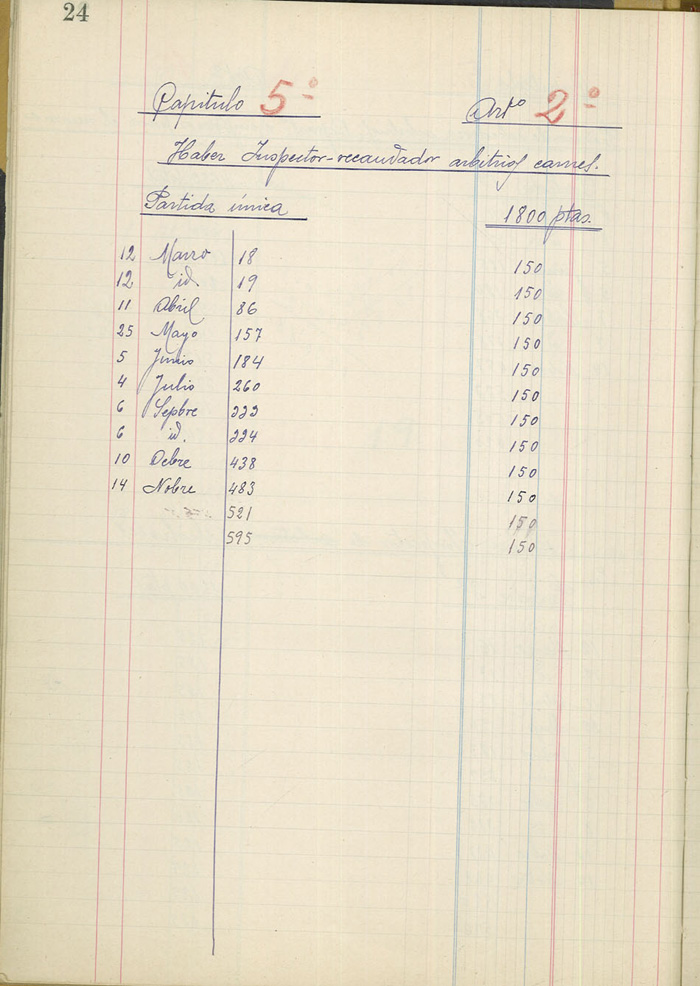 24
Capitulo 5º Artº 2º
Haber Inspector-recaudador arbitrios carnes.
Partida única 1800 ptas.
12 Marzo 18 150
12 id 19 150
11 Abril 86 150
25 Mayo 157 150
5 Junio 184 150
4 Julio 260 150
6 Sepbre 333 150
6 id. 334 150
10 Ocbre 438 150
14 Nobre 483 150
521 150
595 150